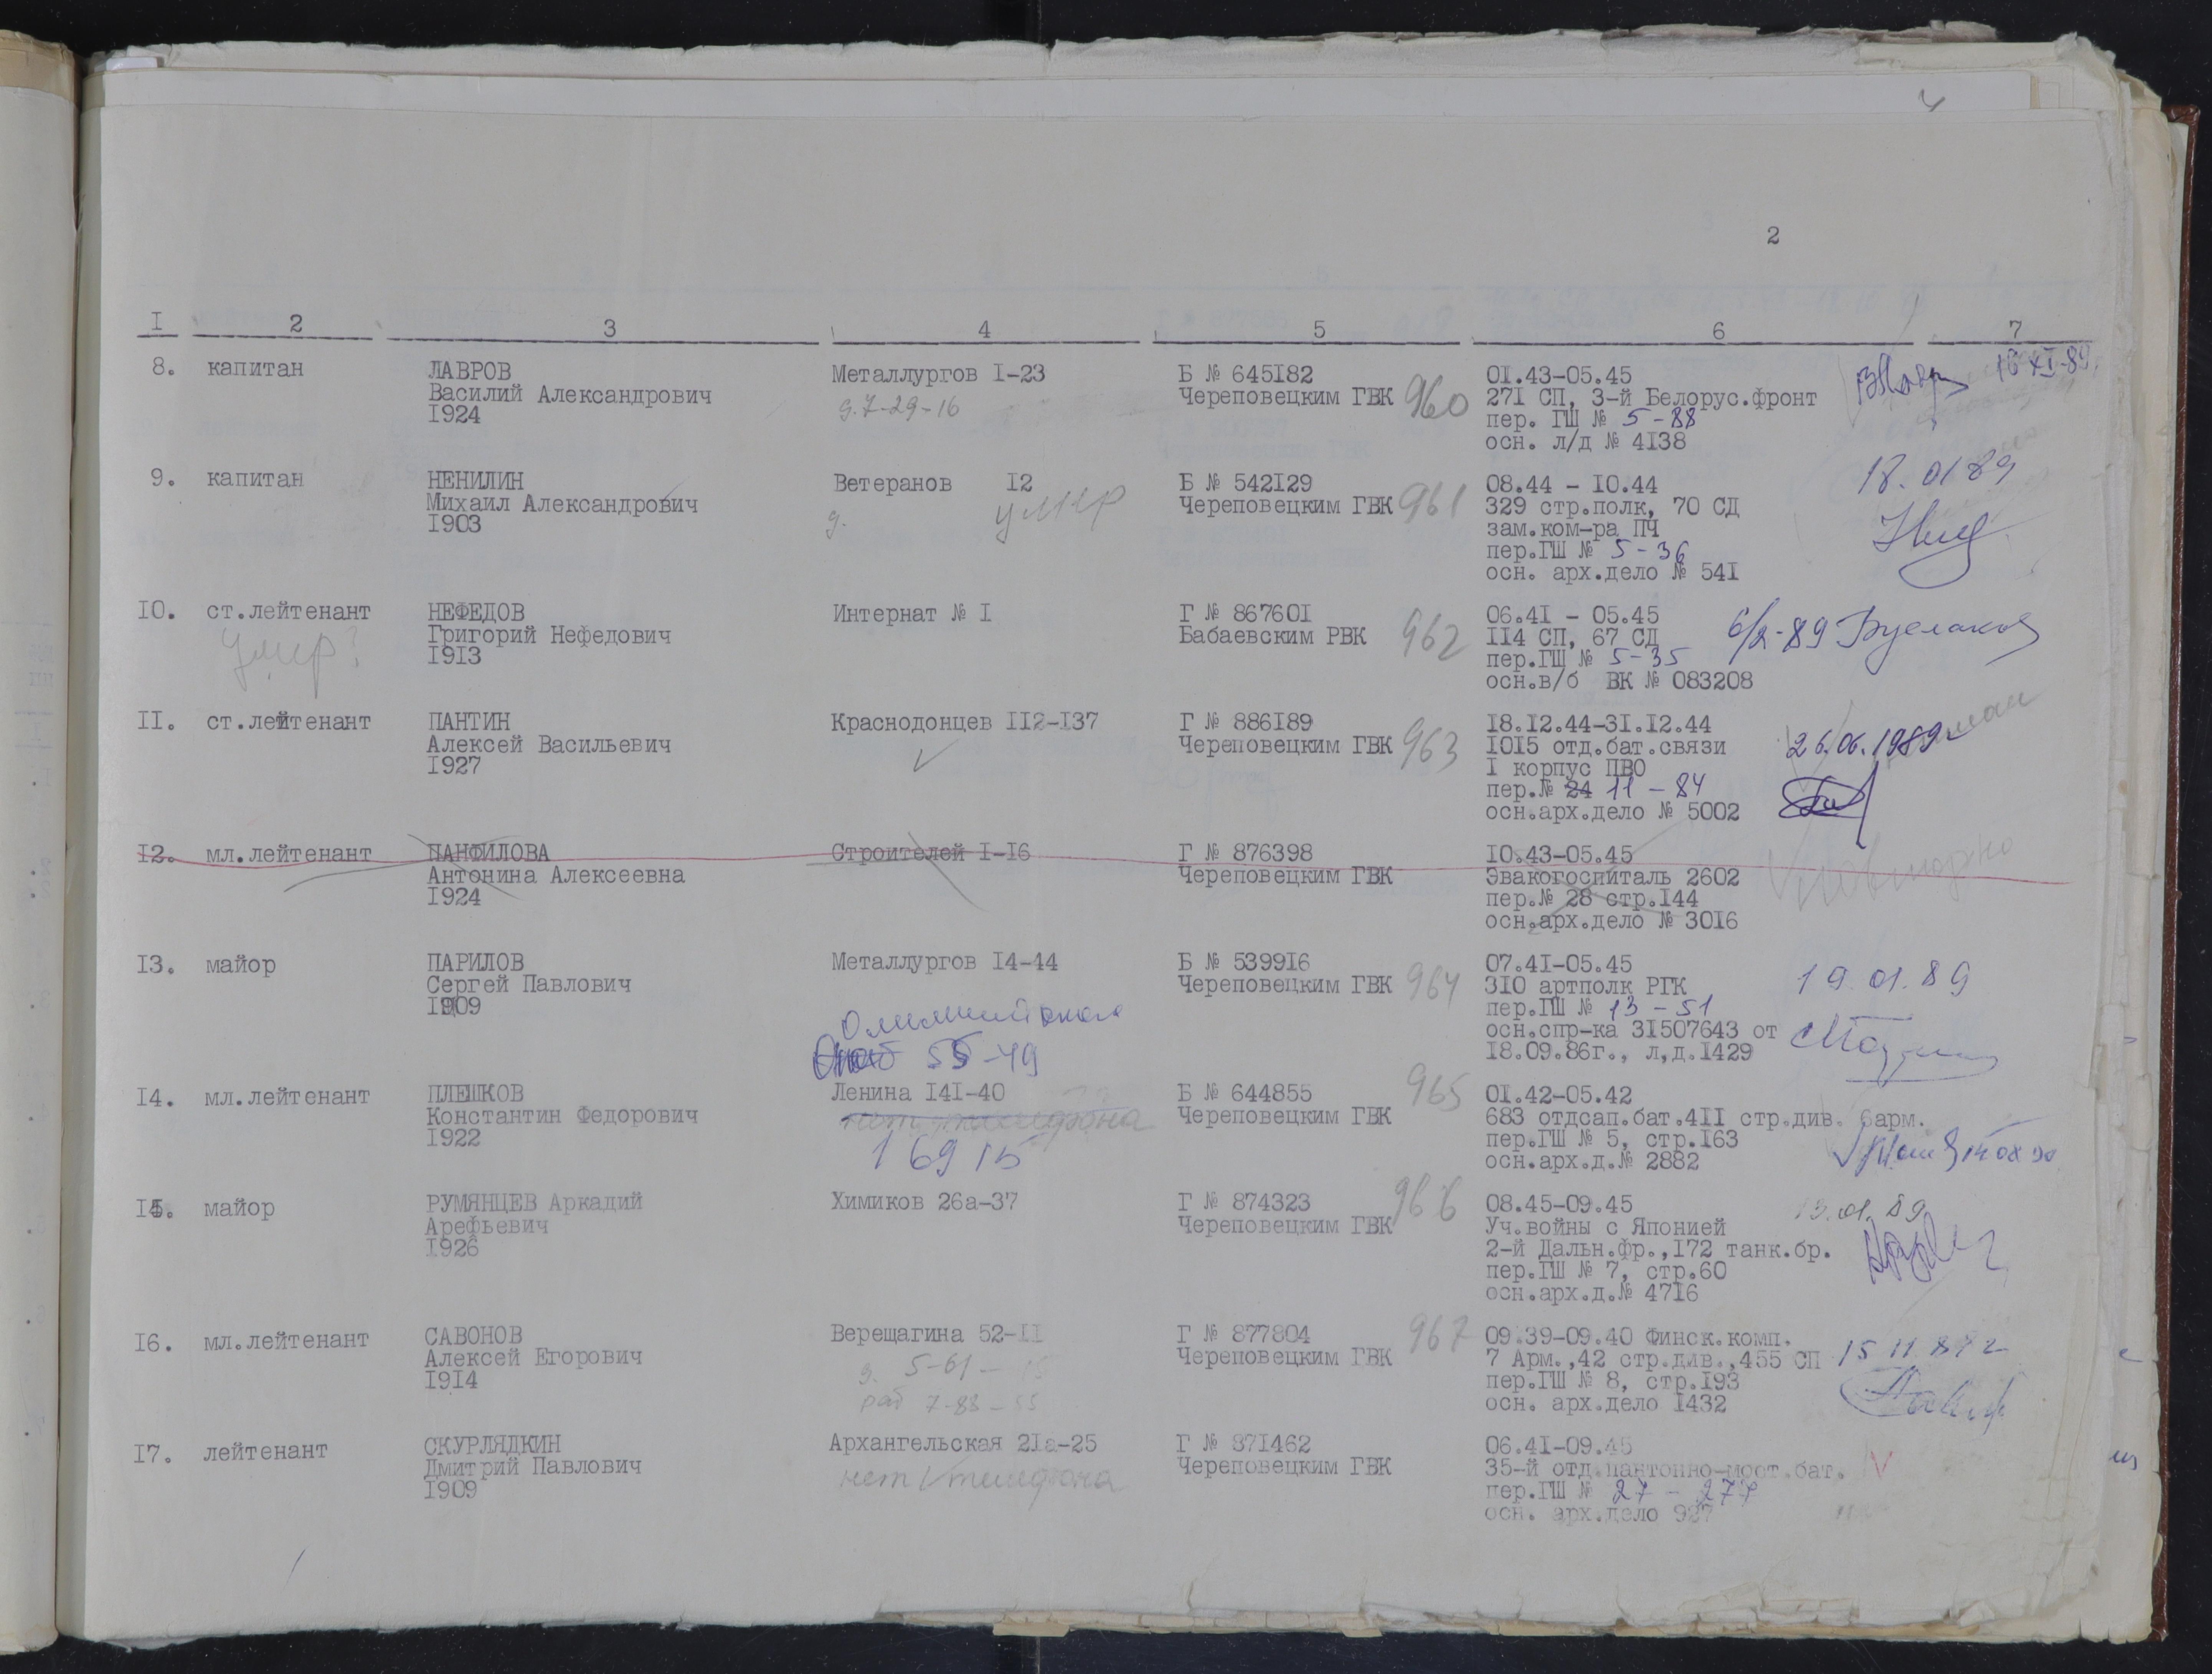 2
I 2 3 4 5 6 7
8. капитан ЛАВРОВ Металлургов I-23 Б № 645I82 01.43-05.45 18 XI-89
Василий Александрович д.7-29-16 Череповецким ГВК 960 27I СП, 3-й Белорус.фронт
I924 пер. ГШ № 5-88
осн. л/д № 4I38
9. капитан НЕНИЛИН Ветеранов I2 Б № 542I29 08.44 - I0.44 18.01 89
Михаил Александрович д. умер Череповецким ГВК 961 329 стр.полк, 70 СД
I903 зам.ком-ра ПЧ
пер.ГШ № 5-36
осн. арх.дело № 54I
I0. ст.лейтенант НЕФЕДОВ Интернат № I Г № 86760I 06.4I - 05.45
умер? Григорий Нефедович Бабаевским РВК 962 II4 СП, 67 СД
I9I3 пер.ГШ № 5-35
осн.в/б ВК № 083208
II. ст.лейтенант ПАНТИН Краснодонцев II2-I37 Г № 886I89 I8.I2.44-3I.I2.44
Алексей Васильевич Череповецким ГВК 963 I0I5 отд.бат.связи 26.06.1989
I927 I корпус ПВО
пер.№ 24 11-84
осн.арх.дело № 5002
I2. мл.лейтенант ПАНФИЛОВА Строителей I-I6 Г № 876398 I0.43-05.45 повторно
Антонина Алексеевна Череповецким ГВК Эвакогоспиталь 2602
I924 пер.№ 28 стр.I44
осн.арх.дело № 30I6
I3. майор ПАРИЛОВ Металлургов I4-44 Б № 5399I6 07.4I-05.45 19.01.89
Сергей Павлович Череповецким ГВК 964 3I0 артполк РГК
I909 Олимпийская пер.ГШ № 13-51
55-49 осн.спр-ка 3I507643 от
I8.09.86г., л,д.I429
I4. мл.лейтенант ПЛЕШКОВ Ленина I4I-40 Б № 644855 965 0I.42-05.42
Константин Федорович нет телефона Череповецким ГВК 683 отдсап.бат.4II стр.див. 6арм.
I922 1 69 15 пер.ГШ № 5, стр.I63
осн.арх.д.№ 2882
I5. майор РУМЯНЦЕВ Аркадий Химиков 26а-37 Г № 874323 966 08.45-09.45 13.01.89
Арефьевич Череповецким ГВК Уч.войны с Японией
I926 2-й Дальн.фр.,I72 танк.бр.
пер.ГШ № 7, стр.60
осн.арх.д.№ 47I6
I6. мл.лейтенант САВОНОВ Верещагина 52-II Г № 877804 967 09.39-09.40 Финск.комп.
Алексей Егорович д. 5-61- Череповецким ГВК 7 Арм.,42 стр.див.,455 СП
I9I4 раб 7-88-55 пер.ГШ № 8, стр.I93
осн. арх.дело I432
I7. лейтенант СКУРЛЯДКИН Архангельская 2Iа-25 Г № 87I462 06.4I-09.45
Дмитрий Павлович нет телефона Череповецким ГВК 35-й отд.пантонно-мост.бат.
I909 пер.ГШ № 27-277
осн. арх.дело 927